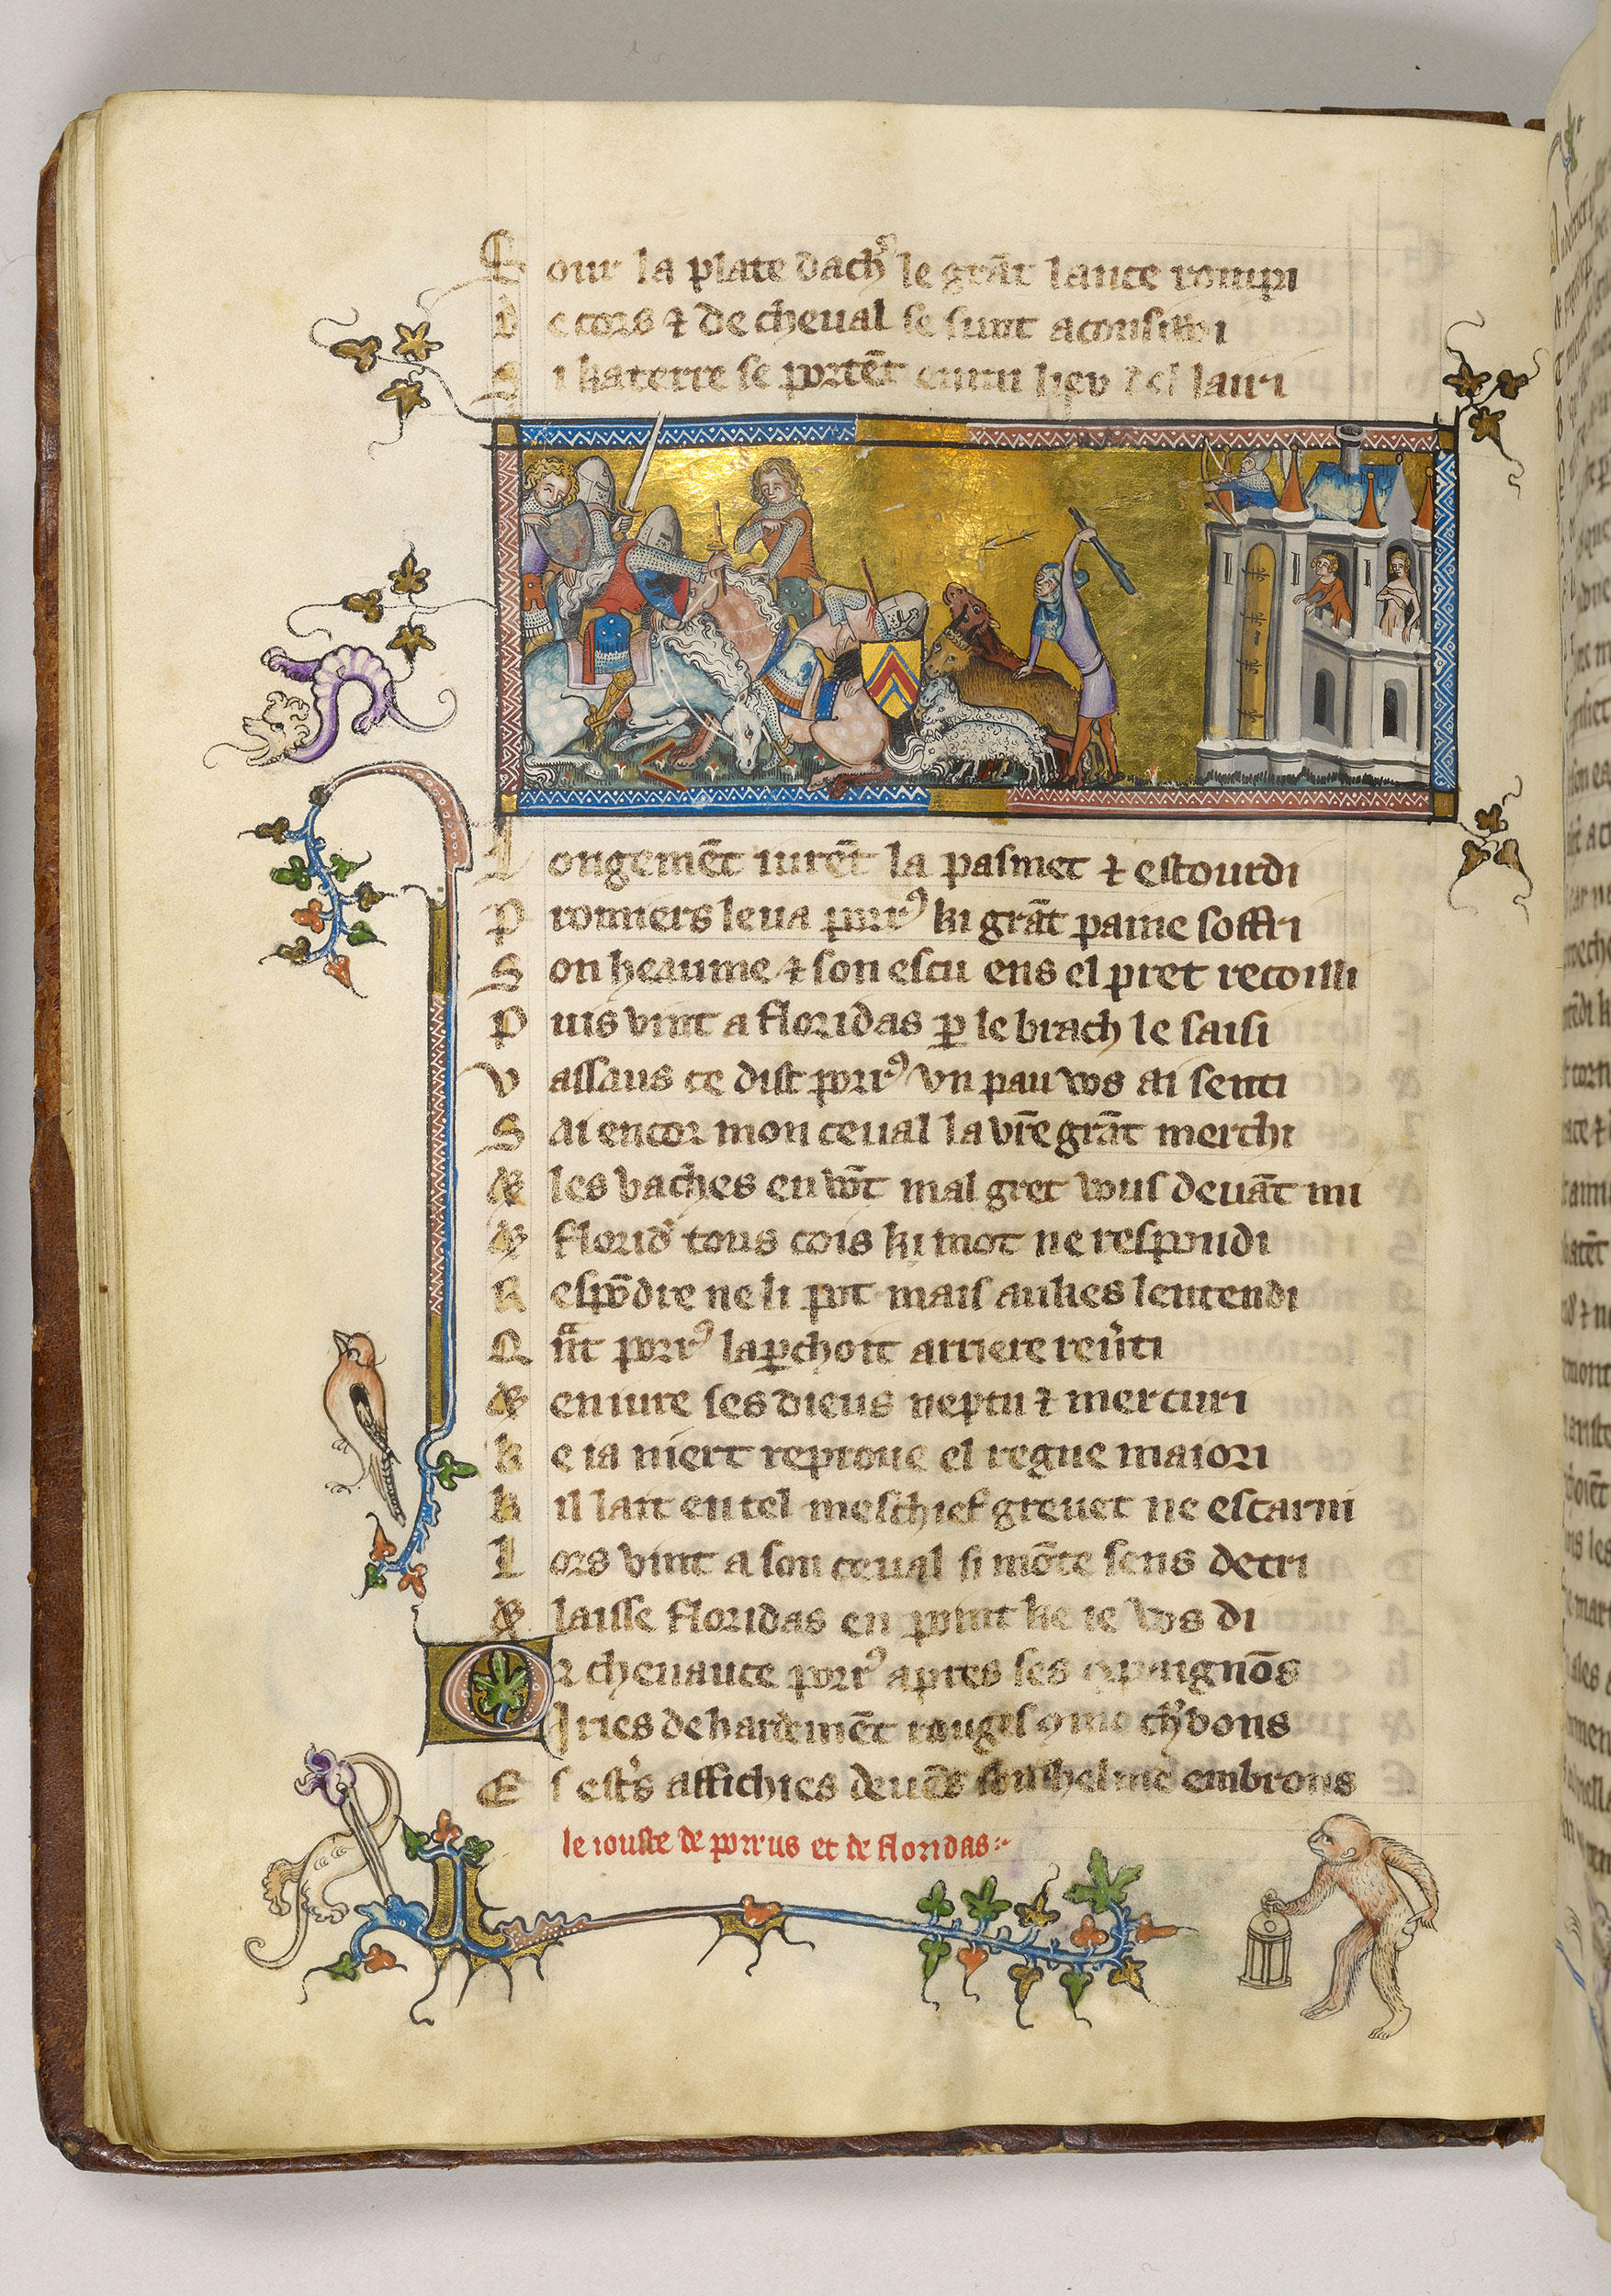 S our la plate dach' le grāt lance rompi
D e cors ⁊ de cheual se sunt aconsiwi
S i ka terre se portēt lieu del lairi
L ongemēt iurēt la pasmet ⁊ estourdi
P romiers leua porrꝯ ki grāt paine soffri
S on heaume ⁊ son escu ens el pret recoilli
P uis vint a floridas ꝑ le brach le saisi
V assaus ce dist porrꝯ vn pau vos ai senti
S ai encor mon ceual la vr̄e grāt merchi
& les vaches en vōt mal gret vous deuāt mi
& florid' tous cois ki mot ne respondi
R espōdre ne li pot mais aukes lentendi
Q nt porrꝯ laꝑchoit arriere reuˀti
& en iure ses dieus neptu ⁊ mercuri
k e ia niert reproue el regne maiori
k il lait en tel meschief greuet ne escarni
L ors vint a son ceual si mōte sens detri
& laisse floridas en point ke ie vos di
O r cheuauce porrꝯ apres ses ꝯpaignōs
I ries de hardemēt rouges ꝯme ch'bons
E s estˀs affichies deuēs son helme embrons
le iouste de porrus et de floridas